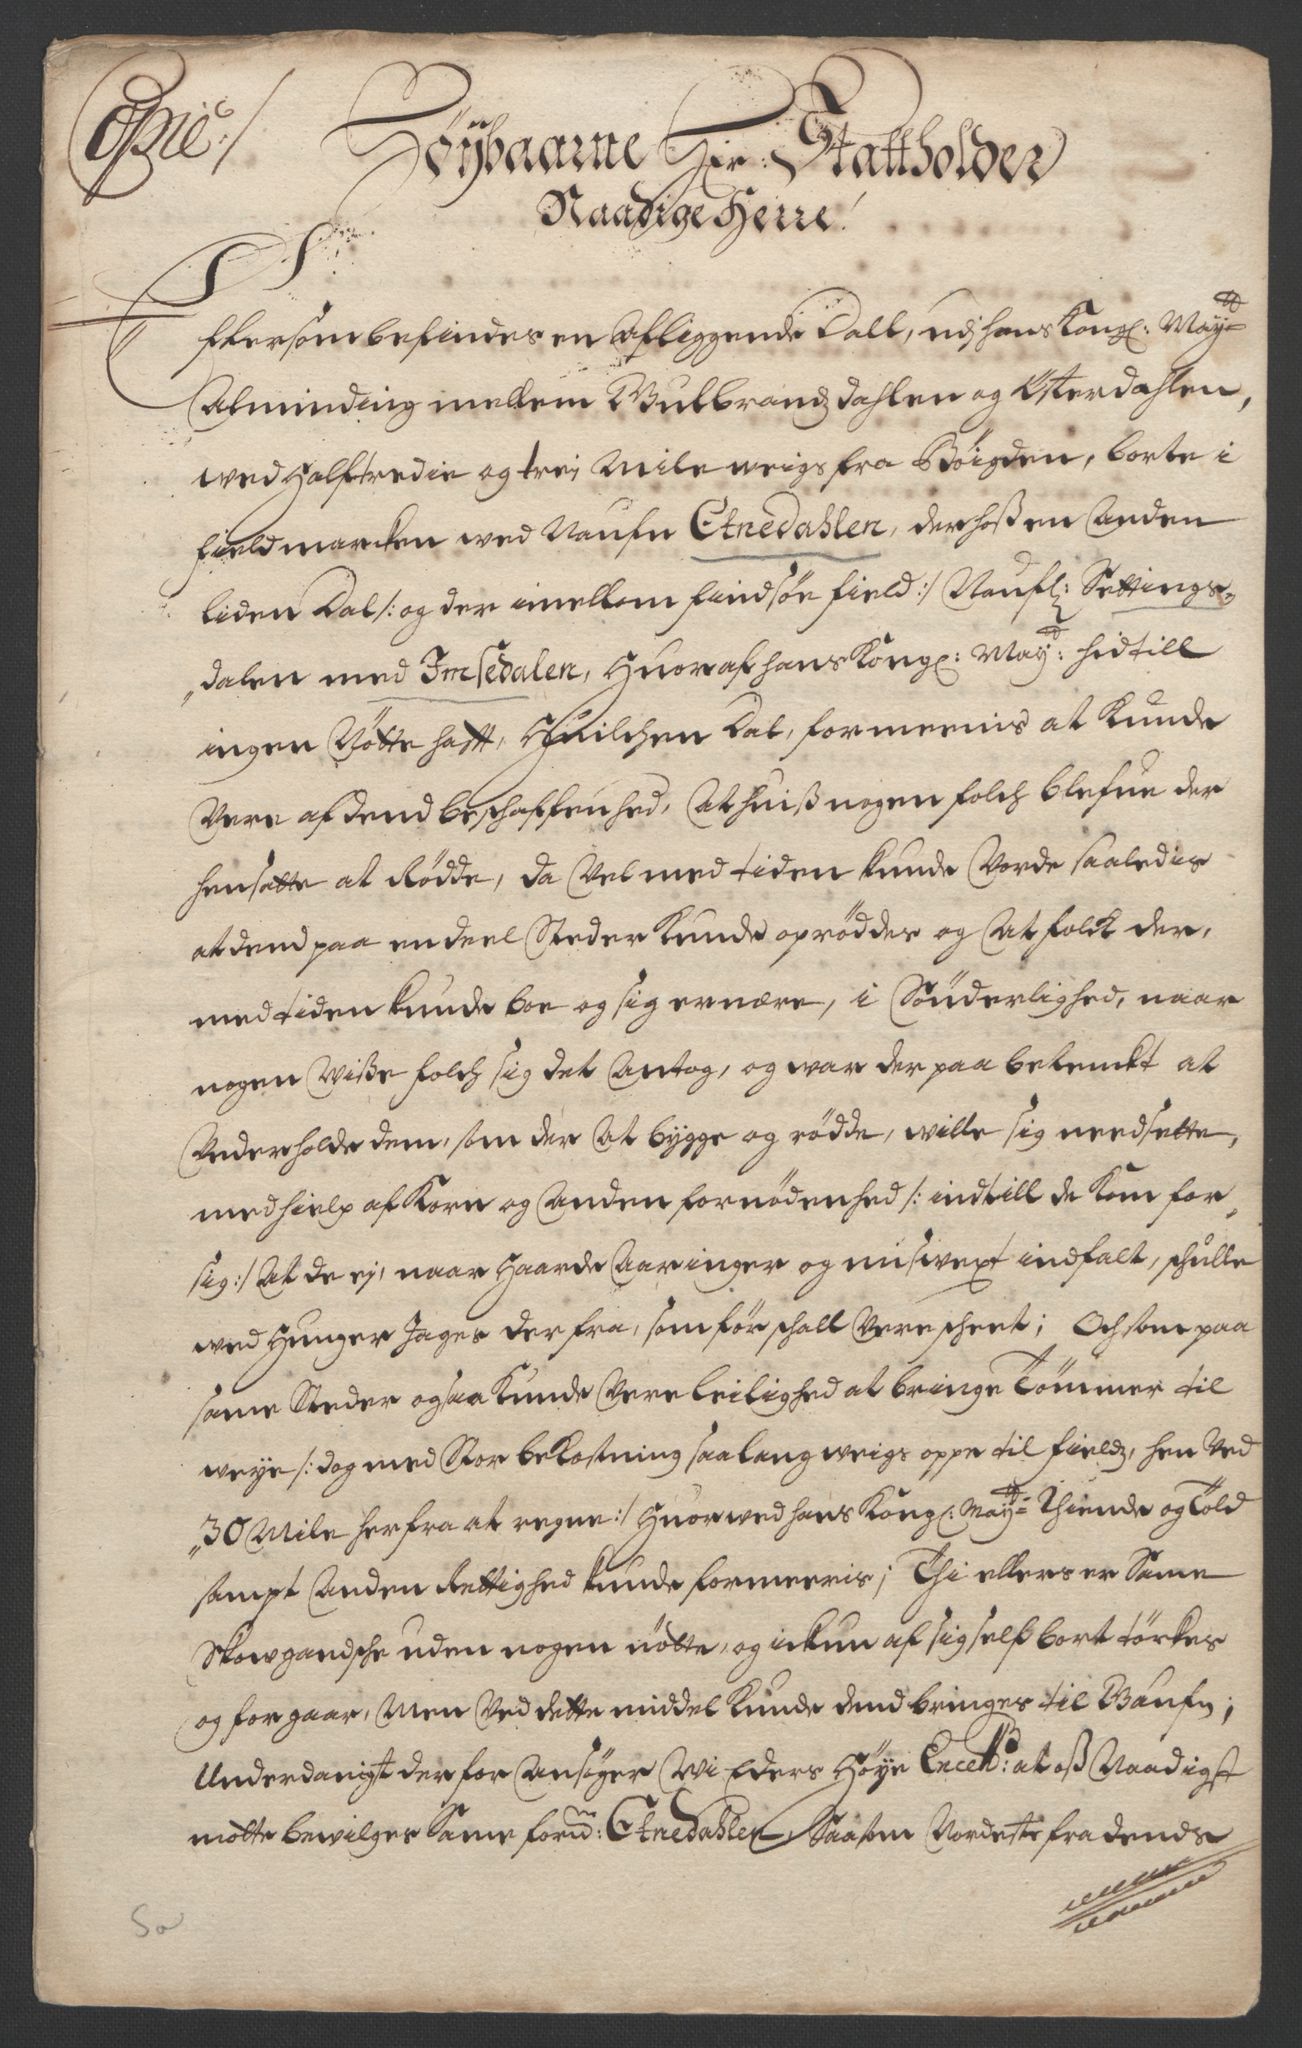 Copie ./
Høybaarne Her Stattholder
Naadige Herre!
Eftersom befindes en Afliggende Dall, udj hans Kongl: May:tz
Alminding mellem Gulbrandzdahlen og Østerdahlen,
wed Halftredie og trej Mile weigs fra Bøigden, borte i
fieldmarcken wed Naufn Etnedahlen, der hoß en Anden
liden Dal /: og der imellom findsøe field :/ Naufl: Settings-
dalen med Imsedalen, Huoraf hans Kongl: May:tt: hidtill
ingen Nøtte hafft, Huilchen Dal, formeenis at kunde
Vere af dend beschaffenhed, At huiß nogen folch blefue der
hensatte at Rødde, da Vel med tiden kunde Vorde saaledis
at dend paa en deel Steder kunde oprøddes og At folch der,
med tiden kunde boe og sig ernære, i Sønderlighed, naar
nogen Wiße folch sig det Antog, og war der paa betenckt at
Vnderholde dem, som der At bygge og rødde, wille sig needsette,
med hielp af Korn og Anden fornødenhed /: indtill de kom for
sig :/ At de ej, naar Haarde Aaringer og miswext indfalt, schulle
wed Hunger Jages der fra, som før schall Vere scheet; Och som paa
same Steder ogsaa kunde Vere leilighed at bringe Tømmer til
weye /: dog med Stor bekostning saa lang weigs oppe til fieldz, hen Ved
30 Mile herfra at regne :/ Huorwed hans Kongl: May:tz Thiende og Told
sampt Anden Rettighed kunde formeeris; Thi ellers er Same
Skowgandsche uden nogen nøtte, og ickun af sig self bort tørkes
og forgaar, Men Ved dette middel kunde dend bringes til Gaufn;
Underdanigst derfor Ansøger Wi Eders Høye Excell: at oß Naadigst
motte bewilges Same form: Etnedahlen, Saasom Norderste fra dends
5a